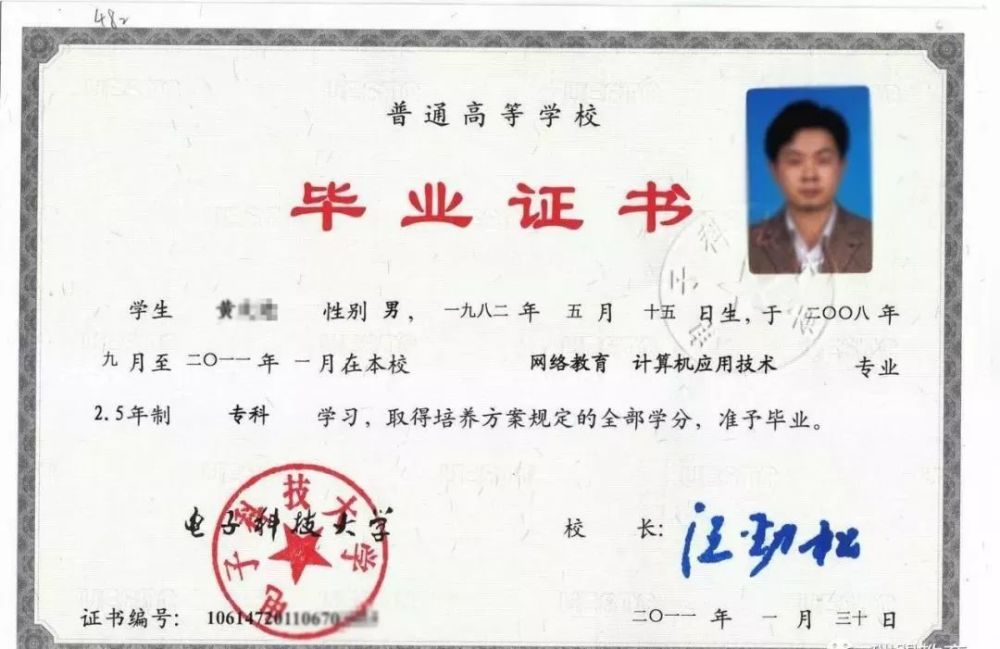 482
普通高等学校
毕业证书
学生 黄 性别 男， 一九八二 年 五 月 十五 日生，于 二〇〇八 年
九 月至 二〇一一 年 一 月在本校 网络教育 计算机应用技术 专业
2.5年制 专科 学习，取得培养方案规定的全部学分，准予毕业。
电子科技大学
电子科技大学
校 长： 汪劲松
证书编号： 10614720110670
二〇一一 年 一 月 三十 日